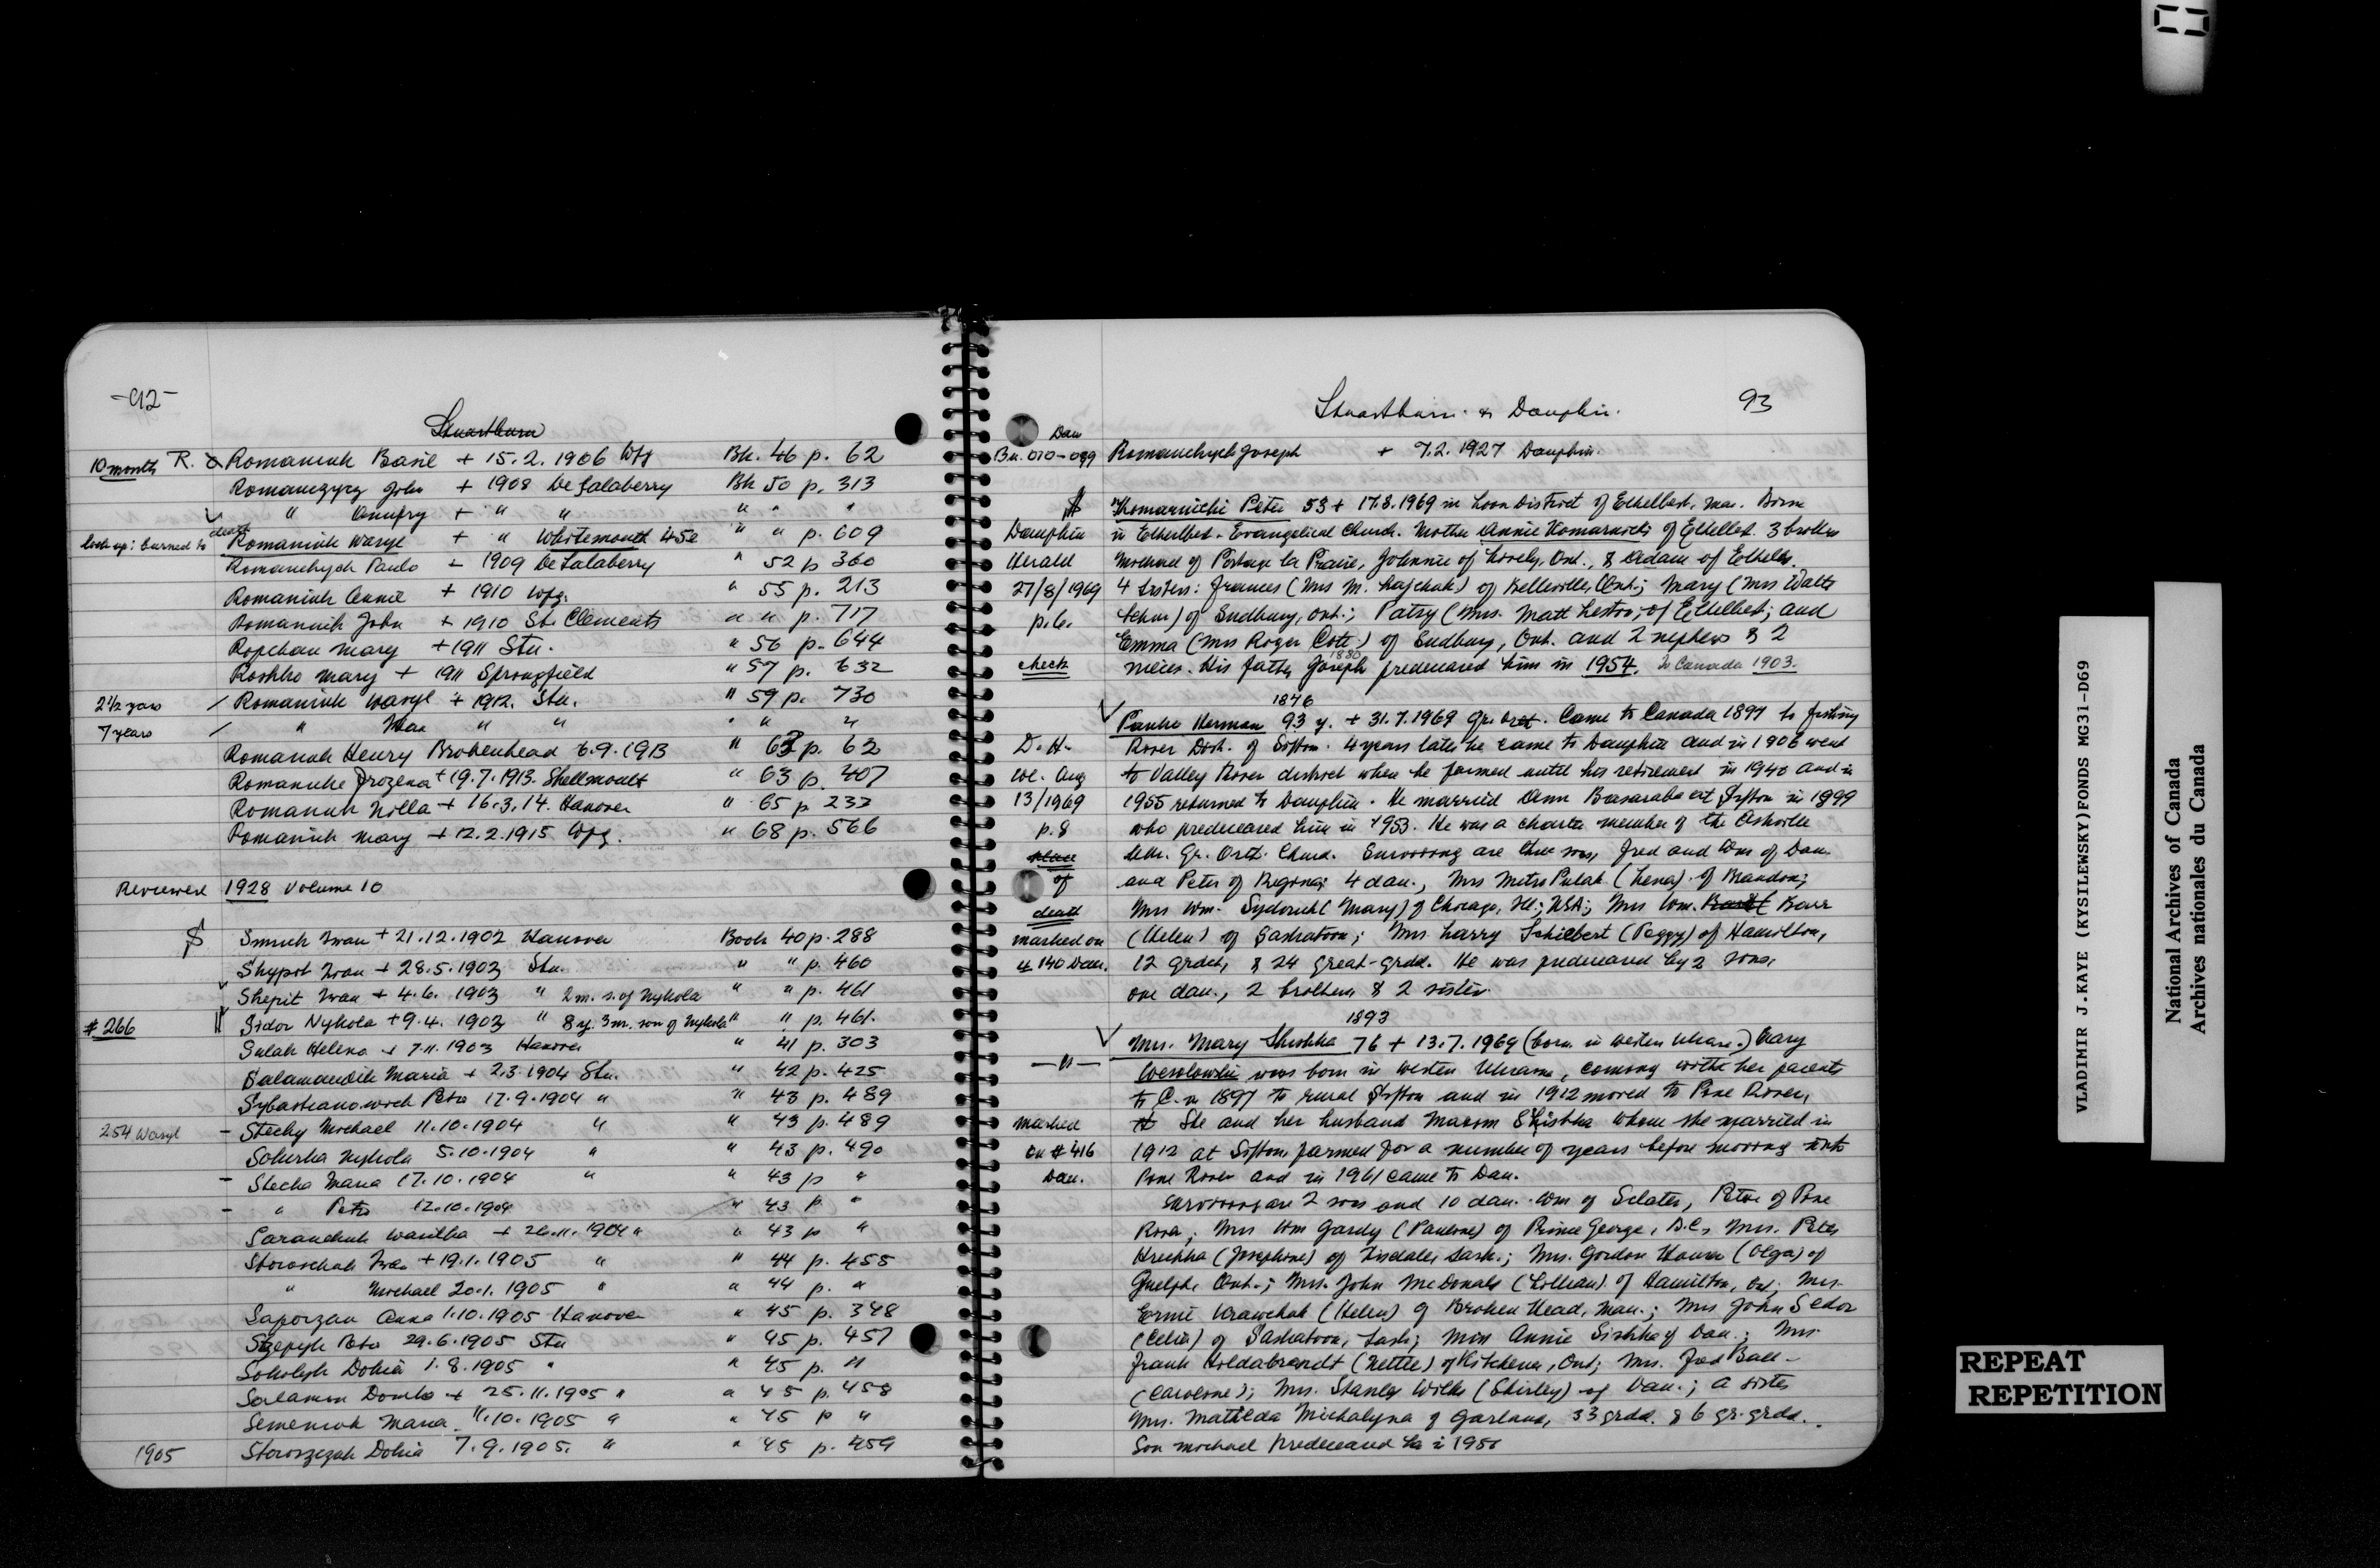 -92-
Stuartburn
10 month R. Romaniuk Basil + 15.2.1906 Wpg Bk. 46 p. 62
Romanczycz John + 1908 De Salaberry Bk 50 p. 313
" Onufry + " " " " "
look up: burned to death Romaniuk Wasyl + " Whitemouth 45a " " p. 609
Romanchych Paulo + 1909 De Salaberry " 52 p 360
Romaniuk Annie + 1910 Wpg. " 55 p. 213
Romaniuk John + 1910 St. Clements " " p. 717
Ropchan Mary + 1911 Stu. " 56 p. 644
Roshko Mary + 1911 Springfield " 57 p. 632
2 1/2 years / Romaniuk Wasyl + 1912. Stu. " 59 p. 730
7 years / " " " " " "
Romaniuk Henry Brokenhead 6.9.1913 " 63 p. 62
Romaniuke Prozena + 19.7.1913. Shellmouth " 63 p. 407
Romaniuk Nilla + 16.3.14. Hanover " 65 p 233
Romaniuk Mary + 12.2.1915 Wpg. " 68 p. 566
Reviewed 1928 Volume 10
S Smuk Iwan + 21.12.1902 Hanover Book 40 p. 288
Shypit Iwan + 28.5.1903 Stu. " " p. 460
Shepit Iwan + 4.6.1903 " 2 m. s. of Nykola " " p. 461
# 266 Sidor Nykola + 9.4.1903 " 8 y. 3 m. son of Nykola " " p. 461.
Salak Helena + 7.11.1903 Hanover " 41 p. 303
Salamandik Maria + 2.3.1904 Stu. " 42 p. 425
Sybastianowich Petro 17.9.1904 " " 43 p. 489
254 Wasyl - Stechy Michael 11.10.1904 " " 43 p. 489
Nykola 5.10.1904 " " 43 p. 490
- Stecha Maria 17.10.1904 " " 43 p "
- " Petro 12.10.1904 " 43 p. "
Saranchuk Wasilka + 26.11.1904 " " 43 p "
Storoschak Iwan + 19.1.1905 " " 44 p. 455
" Michael 20.1.1905 " " 44 p. "
Saporzan Anna 1.10.1905 Hanover " 45 p. 348
Szepyk Petro 29.6.1905 Stu " 45 p. 457
Sokolyk Dokia 1.8.1905 " " 45 p. "
Salamon Domka + 25.11.1905 " " 45 p. 458
Semeniuk Maria 11.10.1905 " " 45 p "
1905 Storoszczak Dokia 7.9.1905. " " 45 p. 459
Stuartburn & Dauphin. 93
Dau
Bu. 010-099 Romanchych Joseph + 7.2.1927 Dauphin.
Komarnicki Peter 53 + 17.8.1969 in Loon District of Ethelbert, Ma. Born
Dauphin in Ethelbert. Evangelical Church. Mother Annie Komarnicki of Ethelbert. 3 brothers
Herald Michael of Portage la Prairie, Johnnie of Lively, Ont., & Adam of Ethelbert.
27/8/1969 4 sisters: Frances (Mrs M. Lajchak) of Belleville, Ont; Mary (Mrs Walts
p. 6. of Sudbury, Ont.; Patsy (Mrs. Matt of Ethelbert; and
Emma (Mrs Roger Cott) of Sudbury, Ont. and 2 nephews & 2
1880
check nieces. His father Joseph predeceased him in 1954. To Canada 1903.
1876
Herman 93 y. + 31.7.1969 Gr. Ort. Came to Canada 1897 to Fishing
D. H. River Dist. of Sifton. 4 years later he came to Dauphin and in 1906 went
we. Aug to Valley River district where he farmed until his retirement in 1940 and in
13/1969 1955 returned to Dauphin. He married Ann Basaraba at Sifton in 1899
p. 8 who predeceased him in 1953. He was a charter member of the Ashville
place Ukr. Gr. Orth. Church. Surviving are three sons, Fred and Wm of Dau.
of and Peter of Regina; 4 dau., Mrs Metro Pulak (Lena) of Brandon;
death Mrs Wm. Sydoruk (Mary) of Chicago, Ill; USA; Mrs Wm. Barr
marked on (Helen) of Saskatoon; Mrs. Larry Schiebert (Peggy) of Hamilton,
# 140 Dau. 12 grdch, & 24 great-grdd. He was predeceased by 2 sons,
one dau., 2 brothers & 2 sister.
1893
Mrs. Mary Shishka 76 + 13.7.1969 (born in western Ukraine.) Mary
—"— Wesolowski was born in western Ukraine, coming with her parents
to C. in 1897 to rural Sifton and in 1912 moved to Pine River,
marked She and her husband Maxim Shishka whom she married in
on # 416 1912 at Sifton, farmed for a number of years before moving into
Dau. Pine River and in 1961 came to Dau.
Surviving are 2 sons and 10 dau. Wm of Sclater, Peter of Pine
River; Mrs Wm Gardy (Pauline) of Prince George, B.C., Mrs. Peter
Hrushka (Josephine) of Tisdale, Sask.; Mrs. Gordon (Olga) of
Guelph, Ont.; Mrs. John McDonald (Lillian) of Hamilton, Ont; Mrs.
Ernie Krawchuk (Helen) of Broken Head, Man.; Mrs John Sedor
(Celia) of Saskatoon, Sask; Miss Annie Sishka of Dau.; Mrs.
Frank Holdabrandt (Nettie) of Kitchener, Ont; Mrs. Fred Ball
(Caroline); Mrs. Stanley Wilks (Shirley) of Dau.; a sister
Mrs. Matilda Michalyna of Garland, 33 grdd. & 6 gr. grdd..
Son Michael predeceased her in 1956
VLADIMIR J. KAYE (KYSILEWSKY) FONDS MG31-D69
National Archives of Canada
Archives nationales du Canada
REPEAT
REPETITION